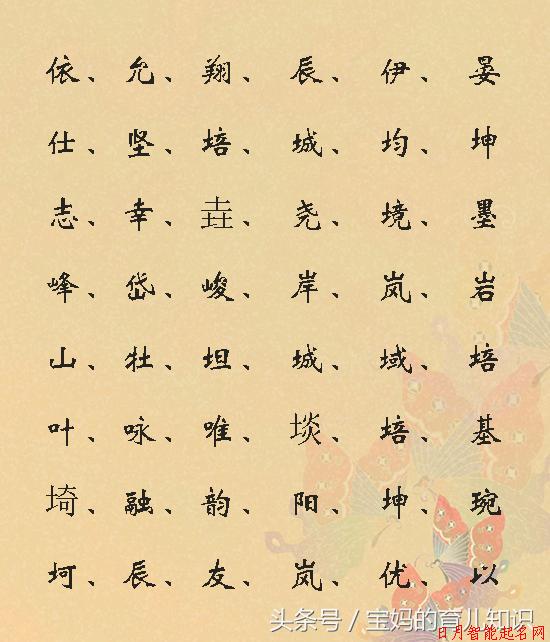 依、允、翔、辰、伊、晏
仕、坚、培、城、均、坤
志、幸、垚、尧、境、墨
峰、岱、峻、岸、岚、岩
山、牡、坦、城、域、培
叶、咏、唯、埮、培、基
埼、融、韵、阳、坤、琬
坷、辰、友、岚、优、以
头条号／宝妈的育儿知识
日月智能起名网